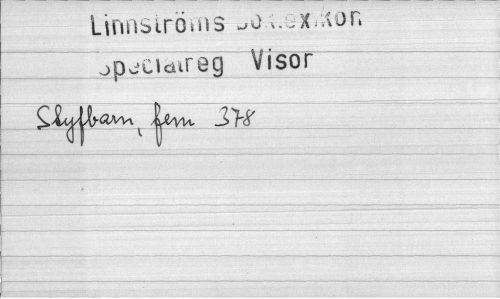 Linnströms Boklexikon
Specialreg Visor
Styfbarn, fem 378